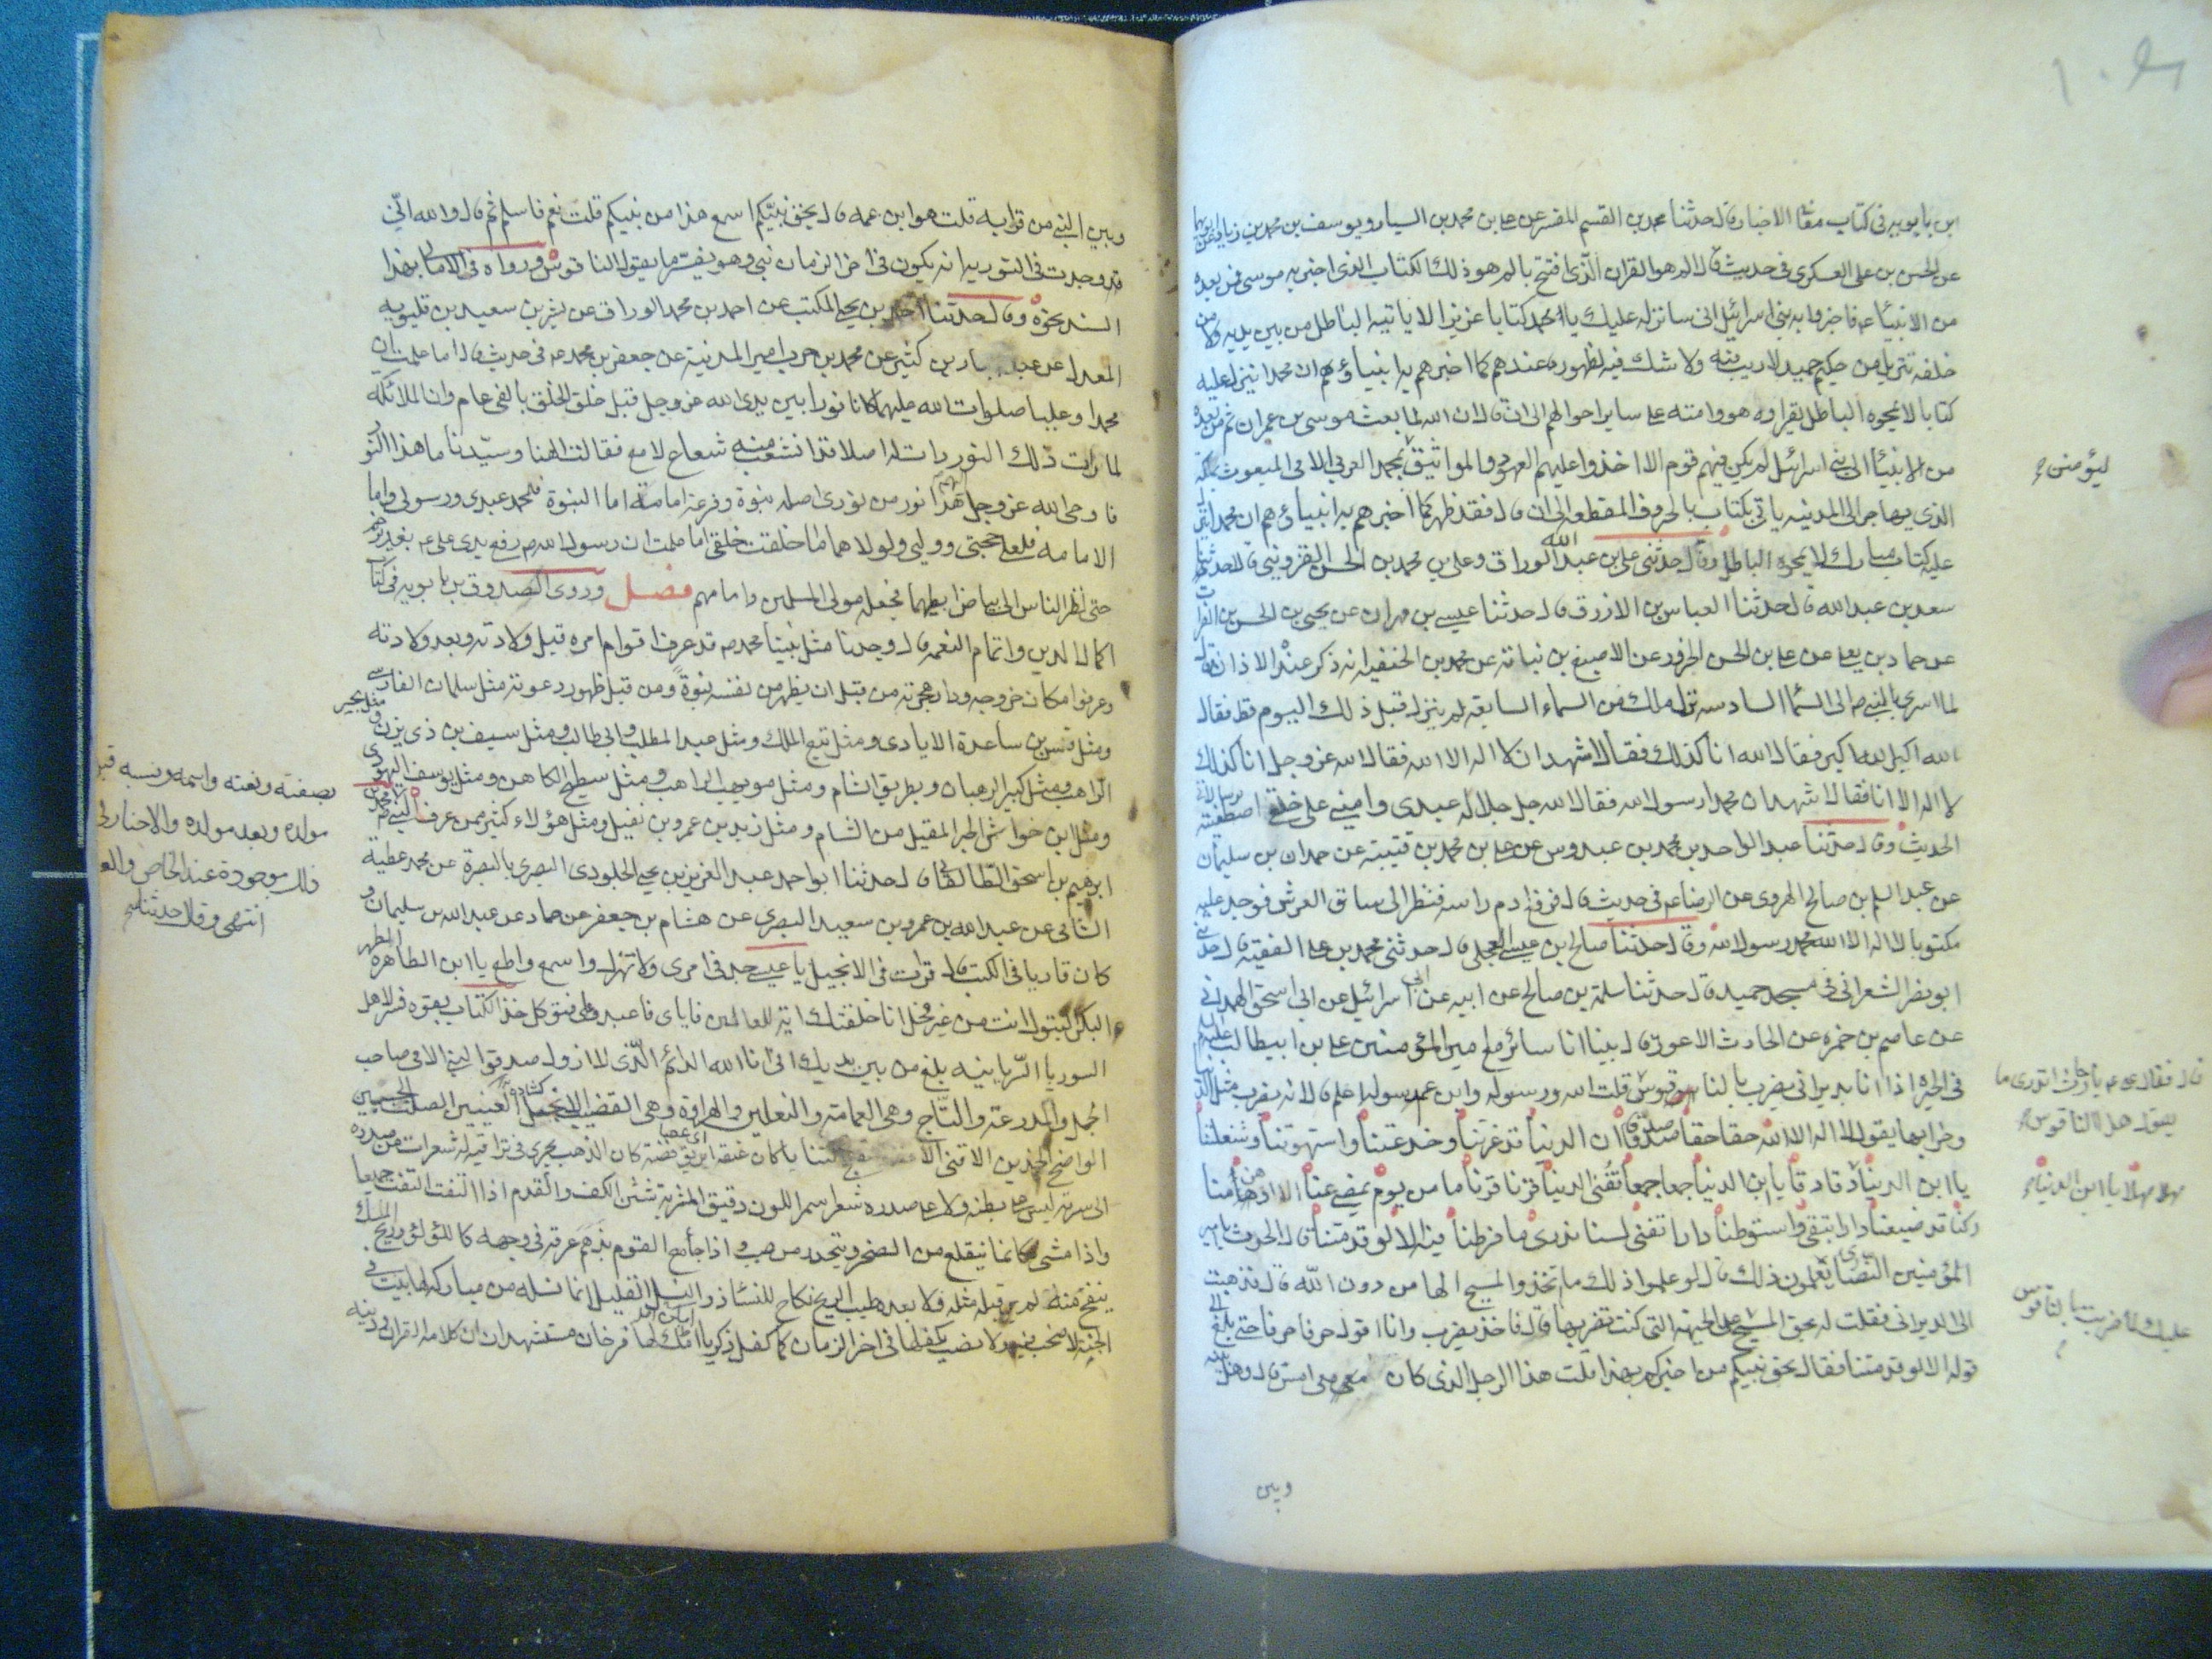 ابن بابويه فى كتاب معانى الاخبار قال حدثنا محمد بن القسم المفسر عن على بن محمد بن السيار ويوسف بن محمد بن زياد عن ابويهما
عن الحسن بن على العسكرى فى حديث قال الم هو القران الذى افتتح بالم هو ذلك الكتاب الذى اخبر به موسى فمن بعده
من الانبيا فاخبروا به بنى اسرائيل انى سانزله عليك يا محمد كتابا عزيزا لا ياتيه الباطل من بين يديه ولا من
خلفه تنزيل من حكيم حميد لا ريب فيه ولا شك فيه لظهوره عندهم كما اخبرهم به انبياؤهم ان محمدا ينزل عليه
كتابا لا يمحوه الباطل يقراوه هو وامته على ساير احوالهم الى ان قال ان الله لما بعث موسى بن عمران ثم من بعده
من الانبيا الى بنى اسرائيل لم يكن فيهم قوم الا اخذوا عليهم العهود والمواثيق بمحمد العربى الامى المبعوث بمكة
ليؤمنن
الذى يهاجر الى المدينه ياتى بكتاب بالحروف المقطعه الى ان قال فقد ظهر كما اخبرهم به انبياؤهم ان محمدا ينزل
عليه كتاب مبارك لا يمحوه الباطل وقال حدثنى على بن عبد الله الوراق وعلى بن محمد بن الحسن القزوينى قال حدثنا
سعد بن عبد الله قال حدثنا العباس بن الازرق قال حدثنا عيسى بن مهران عن يحيى بن الحسن بن الفرات
عن حماد بن يعلى عن على بن الحسن الحزور عن الاصبغ بن نباته عن محمد بن الحنفيه انه ذكر عنده الاذان فقال
لما اسرى بالنبى ص الى السما السادسه نزل ملك من السماء السابعه لم ينزل قبل ذلك اليوم قط فقال
الله اكبر الله اكبر فقال الله انا كذلك فقال اشهد ان لا اله الا الله فقال الله عز وجل انا كذلك
لا اله الا انا فقال اشهد ان محمدا رسول الله فقال الله جل جلاله عبدى وامينى على خلقى اصطفيته برسالاتى
الحديث وقال حدثنا عبد الواحد بن محمد بن عبدوس عن على بن محمد بن قتيبه عن حمدان بن سليمان
عن عبد السلم بن صالح الهروى عن الرضا ع فى حديث قال فرفع ادم راسه فنظر الى ساق العرش فوجد عليه
مكتوبا لا اله الا الله محمد رسول الله وقال حدثنا صالح بن عيسى العجلى قال حدثنى محمد بن على الفقيه قال حدثنى
ابو نصر الشعرانى فى مسجد حميد قال حدثنا سلمة بن صالح عن ابيه عن اسرائيل عن ابى اسحق الهمدانى
عن عاصم بن ضمره عن الحارث الاعور قال بينا انا سائر مع امير المؤمنين على بن ابيطالب عليه السلم
فى الحيرة اذا انا بديرانى يضرب بالناقوس قلت الله ورسوله وابن عم رسوله اعلم قال انه يضرب مثل الدنيا
قال فقال على ع يا حارث اتدرى ما
يقول هذا الناقوس
وخرابها يقول لا اله الا الله حقا حقا صدقا ان الدنيا قد غرتنا وخدعتنا واستهوتنا وشغلتنا
مهلا مهلا يا ابن الدنيا
يا ابن الدنيا دقا دقا يا ابن الدنيا جمعا جمعا تفنى الدنيا قرنا قرنا ما من يوم يمضى عنا الا اوهن منا
ركنا قد ضيعنا دارا تبقى واستوطنا دارا تفنى لسنا ندرى ما فرطنا فيها الا لو قد متنا قال الحارث يا امير
المؤمنين النصارى يعلمون ذلك قال لو علموا ذلك ما تخذوا المسيح الها من دون الله قال فذهبت
الى الديرانى فقلت له بحق المسيح عليك لما ضربت بالناقوس على الجهة التى كنت تضربها قال فاخذ يضرب وانا اقول حرفا حرفا حتى بلغ
قوله الا لو قد متنا فقال بحق نبيكم من اخبركم بهذا قلت هذا الرجل الذى كان معى امس قال وهل بينه
وبين
وبين النبى من قرابه قلت هو ابن عمه قال بحق نبيكم اسمع هذا من نبيكم قلت نعم فاسلم ثم قال والله انى
قد وجدت فى التوريه انه يكون فى اخر الزمان نبى وهو يفسر ما يقول الناقوس ورواه فى الامالى بهذا
السند نحوه وقال حدثنا احمد بن يحيى المكتب عن احمد بن محمد الوراق عن بشر بن سعيد بن قلبويه
المعدل عن عبد الجبار بن كثير عن محمد بن حرب امير المدينة عن جعفر بن محمد ع فى حديث قال اما علمت ان
محمدا وعليا صلوات الله عليهما كانا نورا بين يدى الله عز وجل قبل خلق الخلق بالفى عام وان الملائكه
لما رات ذلك النور رات له اصلا قد انشعب منه شعاع لامع فقالت الهنا وسيدنا ما هذا النور
فاوحى الله عز وجل اليهم هذا نور من نورى اصله نبوة وفرعه امامة اما النبوة فلمحمد عبدى ورسولى واما
الامامه فلعلى حجتى ووليى ولولاهما ما خلقت خلقى اما علمت ان رسول الله ص رفع يدى على ع بغدير خم
حتى نظر الناس الى بياض ابطيهما فجعله مولى المسلمين وامامهم فصل وروى الصدوق بن بابويه فى كتاب
اكمال الدين واتمام النعمه قال وجدنا مثل نبينا محمد ص قد عرف اقوام امره قبل ولادته وبعد ولادته
وعرفوا مكان خروجه ودار هجرته من قبل ان يظهر من نفسه نبوة ومن قبل ظهور دعوته مثل سلمان الفارسى
ومثل قس بن ساعدة الايادى ومثل تبع الملك ومثل عبد المطلب وابى طالب ومثل سيف بن ذى يزن ومثل بحير
الراهب ومثل كبير الرهبان وطريق الشام ومثل ابو مويهب الراهب ومثل سطيح الكاهن ومثل يوسف اليهودى
ومثل ابن حواش الحبر المقبل من الشام ومثل زيد بن عمرو بن نفيل ومثل هؤلاء كثير ممن عرف النبى ص
بصفته ونعته واسمه ونسبه قبل
مولده وبعد مولده والاخبار فى
ذلك موجودة عند الخاص والعام
انتهى وقال حدثنا
ابرهيم بن اسحق الطالقانى قال حدثنا ابو احمد عبد العزيز بن يحيى الجلودى البصرى بالبصرة عن محمد عطية
الشامى عن عبد الله بن عمرو بن سعيد البصرى عن هشام بن جعفر عن حماد عن عبد الله بن سليمان و
كان قاريا فى الكتب قال قرات فى الانجيل يا عيسى جد فى امرى ولا تهزل واسمع واطع يا ابن الطاهرة الطهر
البكر البتول انت من غير فحل انا خلقتك اية للعالمين فاياى فاعبد وعلى فتوكل خذ الكتاب بقوه فسر لاهل
السوريا السريانيه بلغ من بين يديك انى انا الله الدائم الذى لا ازول صدقوا النبى الامى صاحب
الجمل والمدرعة والتاج وهى العمامة والنعلين والهراوة وهى القضيب الانجل العينين الصلت الجبين
الواضح الخدين الاقنى الانف مفلج الثنايا كان عنقه ابريق فضة كان الذهب يجرى فى تراقيه له شعرات من صدره
الى سرته ليس على بطنه ولا على صدره شعر اسمر اللون دقيق المسربة شثن الكف والقدم اذا التفت التفت جميعا
واذا مشى كانما ينقلع من الصخر ويتحدر من صبب واذا جامع القوم بذهم عرقه فى وجهه كاللؤلؤ وريح المسك
ينفح منه لم ير قبله مثله ولا بعده طيب الريح نكاح للنسا ذو النسل القليل انما نسله من مباركه لها بيت فى
الجنه لا صخب فيه ولا نصب يكفلها فى اخر الزمان كما كفل زكريا امك لها فرخان مستشهدان كلامه القران ودينه